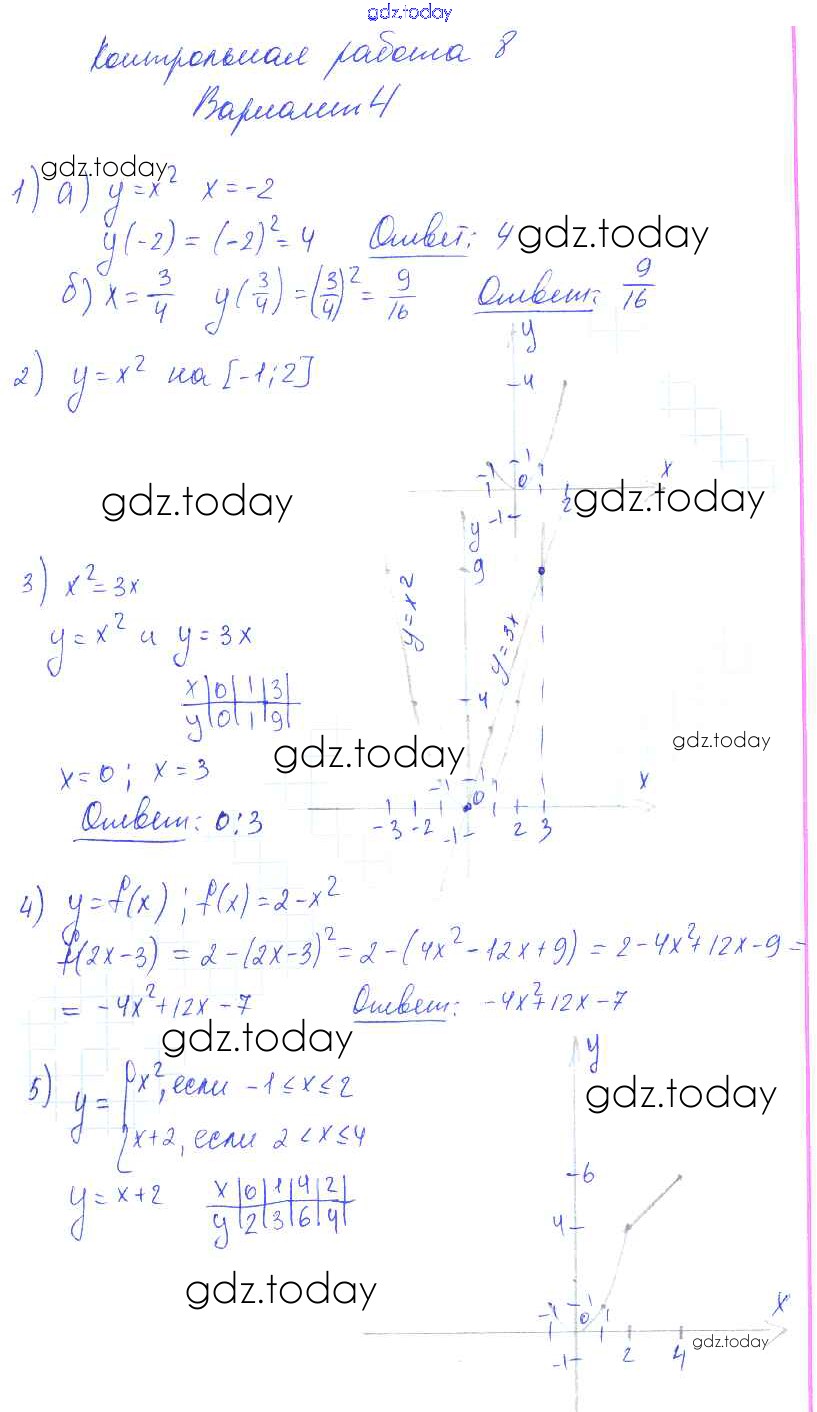 gdz.today
Контрольная работа 8
Вариант 4
gdz.today
1) а) y = x² x = -2
y(-2) = (-2)² = 4 Ответ: 4 gdz.today
б) x = 3/4 y(3/4) = (3/4)² = 9/16 Ответ: 9/16
2) y = x² на [-1; 2]
y
4
-1 1
-1 0 1 2 x
-1
gdz.today gdz.today
3) x² = 3x
y = x² и y = 3x
x | 0 | 1 | 3 |
y | 0 | 1 | 9 |
x = 0; x = 3
Ответ: 0; 3
y
9
y = x²
y = 3x
4
gdz.today gdz.today
-1 1
0 x
-3 -2 2 3
-1
4) y = f(x); f(x) = 2 - x²
f(2x-3) = 2 - (2x-3)² = 2 - (4x² - 12x + 9) = 2 - 4x² + 12x - 9 =
= -4x² + 12x - 7 Ответ: -4x² + 12x - 7
gdz.today
5) y = { x², если -1 ≤ x ≤ 2
x+2, если 2 < x ≤ 4
y = x + 2
x | 0 | 1 | 4 | 2 |
y | 2 | 3 | 6 | 4 |
y
gdz.today
6
4
gdz.today
-1 1
-1 0 1 2 4 x
-1
gdz.today